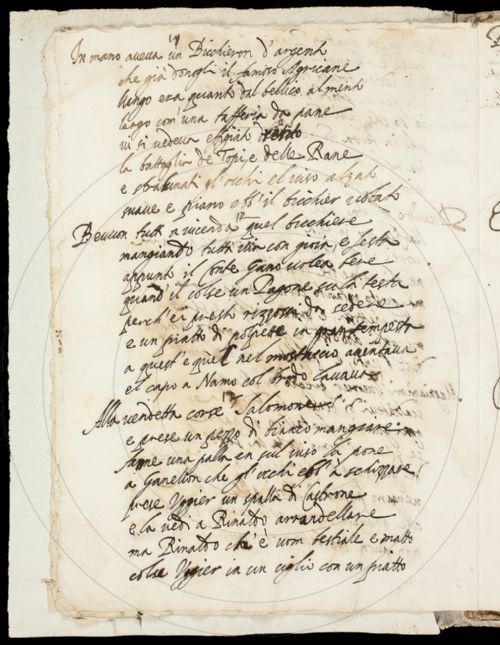 In mano aveva un Bicchieron d'argent
che già donogli il famoso Agricane
lungo era quant dal bellico al ment
largo com' una tafferia da pane
ivi si vedeva
la battaglia de Topi, e delle Rane
e stralunati gl'occhi el viso alzat
suave e piano
Bevvon tutti a vicenda 17 quel bicchiere
mangiando tutti con gioia, e festa
appunt il Conte Gano volea bere
quand il colse un Pagone su la testa
perch' ei
e un piatto di polpette in gran tempesta
a quest' e quel nel mostaccio aventava
e'l capo a Namo col brodo lavava
Alla vendetta corse 18 Salomone
e prese un pezzo di bianco mangiare
fanne una palla e'n sul viso la pone
a Ganellon che gl'occhi
prese Uggier un spalla di Castrone
e la vedi a Rinaldo arrandellare
ma Rinaldo ch'è uom bestiale e matto
colse Uggier in un ciglio con un piatto